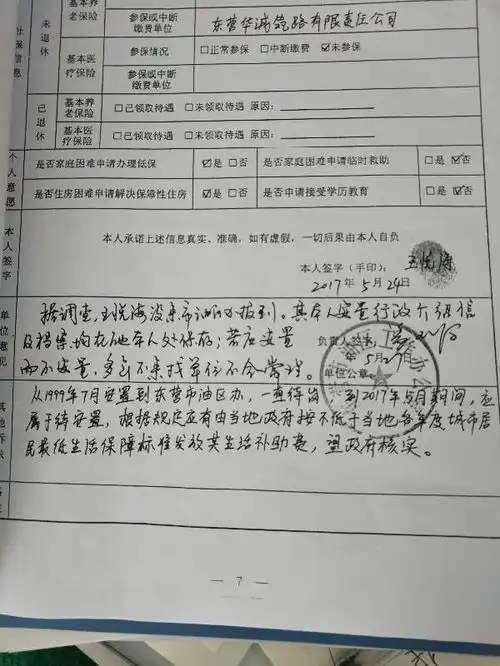 社保信息
未退休
基本养老保险
参保或中断缴费单位
东营华诚铁路有限责任公司
基本医疗保险
参保情况 □正常参保 □中断缴费 ☑未参保
参保或中断缴费单位
已退休
基本养老保险
□已领取待遇 □未领取待遇 原因:
基本医疗保险
□已领取待遇 □未领取待遇 原因:
个人意愿
是否家庭困难申请办理低保 ☑是 □否 是否家庭困难申请临时救助 □是 ☑否
是否住房困难申请解决保障性住房 ☑是 □否 是否申请接受学历教育 □是 ☑否
本人签字
本人承诺上述信息真实、准确,如有虚假,一切后果由本人自负
本人签字(手印): 王悦海
2017年5月24日
单位意见
据调查,王悦海没来市 办报到。其本人安置行政介绍信
及档案,均在他本人处保存;若应安置
而不安置,多年不来找单位不合常理。
负责人签字
5.27
单位公章
其他诉求
从1999年7月安置到东营市油区办,一直待岗 到2017年5月期间,应
属于待安置,根据规定应有由当地政府按不低于当地各年度城市居
民最低生活保障标准发放其生活补助费,望政府核实。
— 7 —